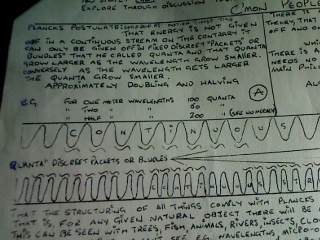 EXPLORE THROUGH DISCUSSION
C'MON PEOPLE
PLANCKS POSTULATE
THAT ENERGY IS NOT GIVEN
OFF IN A CONTINUOUS STREAM ON THE CONTRARY IT
CAN ONLY BE GIVEN OFF IN FIXED DISCREET "PACKETS" OR
BUNDLES" THAT HE CALLED QUANTA AND THAT QUANTA
GROW LARGER AS THE WAVELENGTH GROW SMALLER.
CONVERSELY AS THE WAVELENGTH GETS LARGER
THE QUANTA GROW SMALLER.
APPROXIMATELY DOUBLING AND HALVING
THEORY, THAT
OFF AND
THERE IS
NEEDS NO
MAIN
EG FOR ONE METER WAVELENGTHS 100 QUANTA
" TWO " " 50
" HALF " " 200
A
CONTINUOUS
QUANTA" DISCREET PACKETS OR BUNDLES
THAT THE STRUCTURING OF ALL THINGS COMPLY WITH PLANCKS
THAT IS, FOR ANY GIVEN NATURAL OBJECT THERE WILL BE
THIS CAN BE SEEN WITH TREES, FISH, ANIMALS, RIVERS, INSECTS,
SEE E.G. WAVELENGTHS